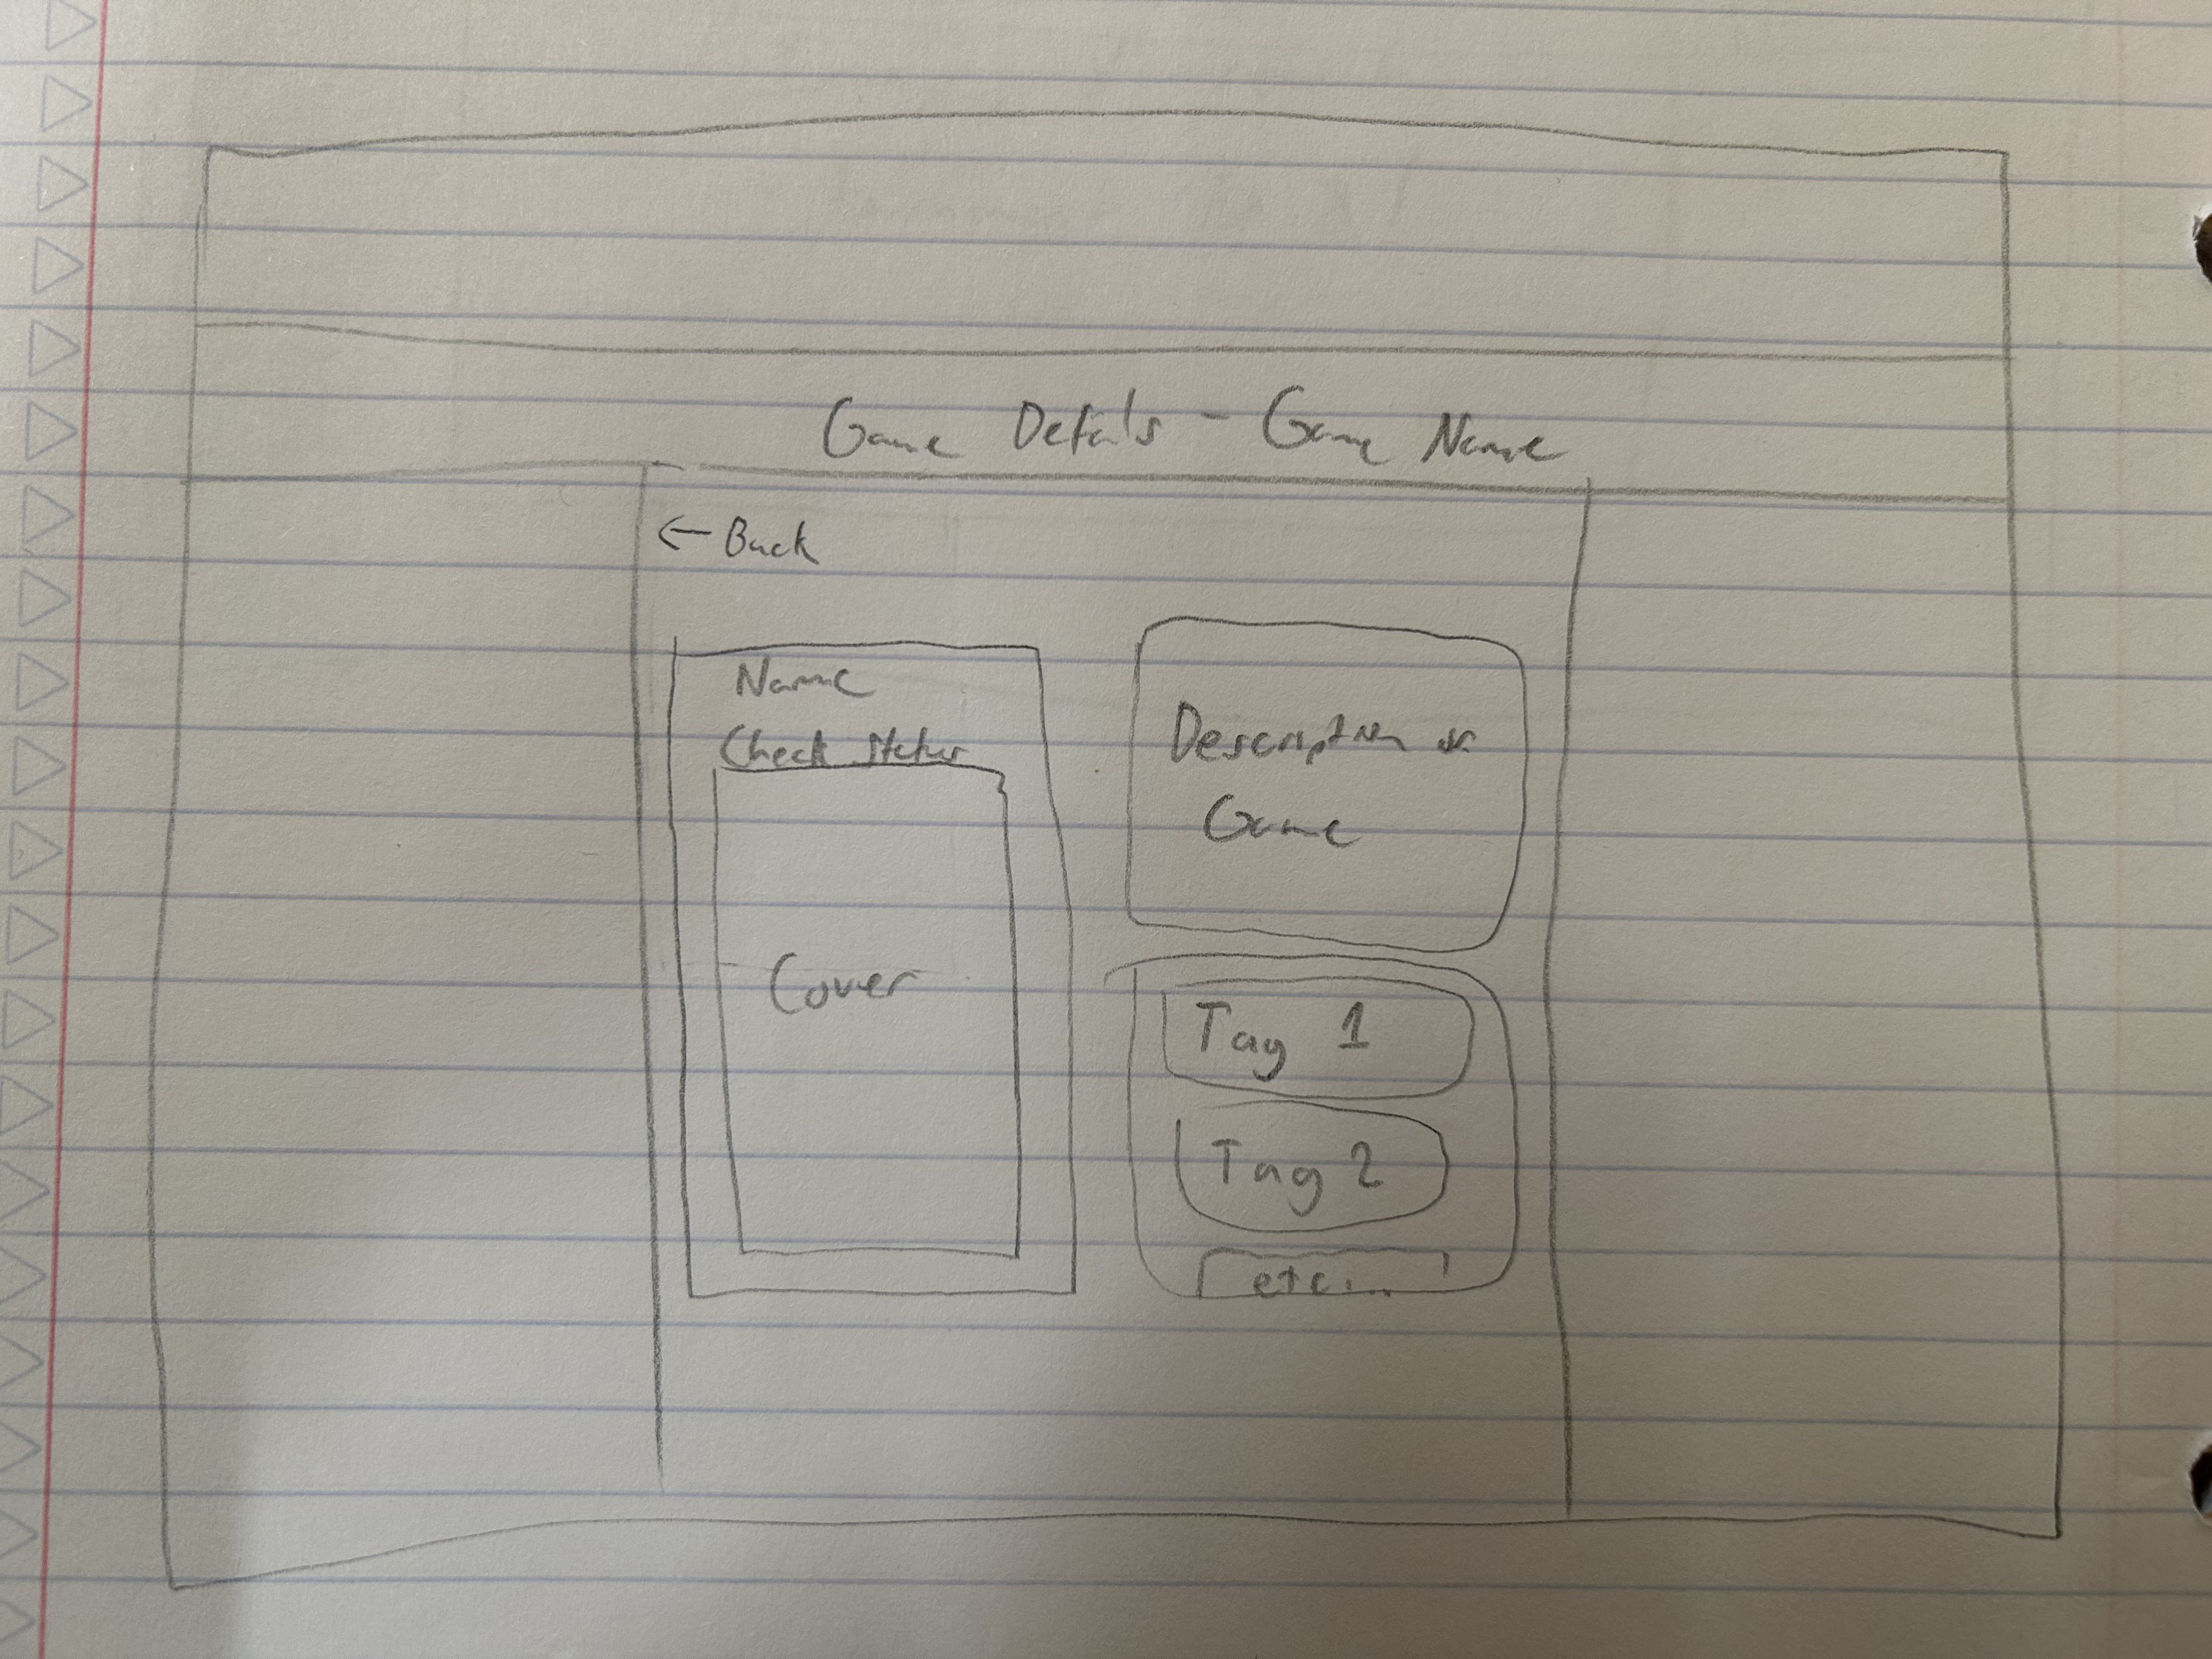 Game Details - Game Name
← Back
Name
Check Status
Cover
Description
Game
Tag 1
Tag 2
etc...